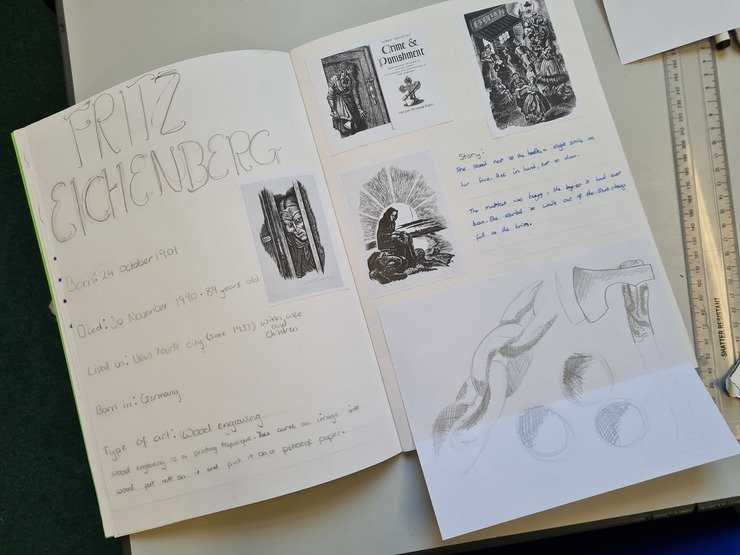 FRITZ
EICHENBERG
Born: 24 october 1901
Died: 30 November 1990. 89 years old
Lived in: New York city (since 1933) with wife
and
children
Born in: Germany
Type of art: Wood engraving
Wood engraving is a printing technique. They carve an image into
wood put ink on it and put it on a piece of paper.
Crime &
Punishment
Story:
She stood next to the bodies, a slight smile on
her face. Axe in hand, so close.
The market was busy; the busiest it had ever
been. She started to walk out of the shop, bags
full to the brim.
SHATTER RESISTANT